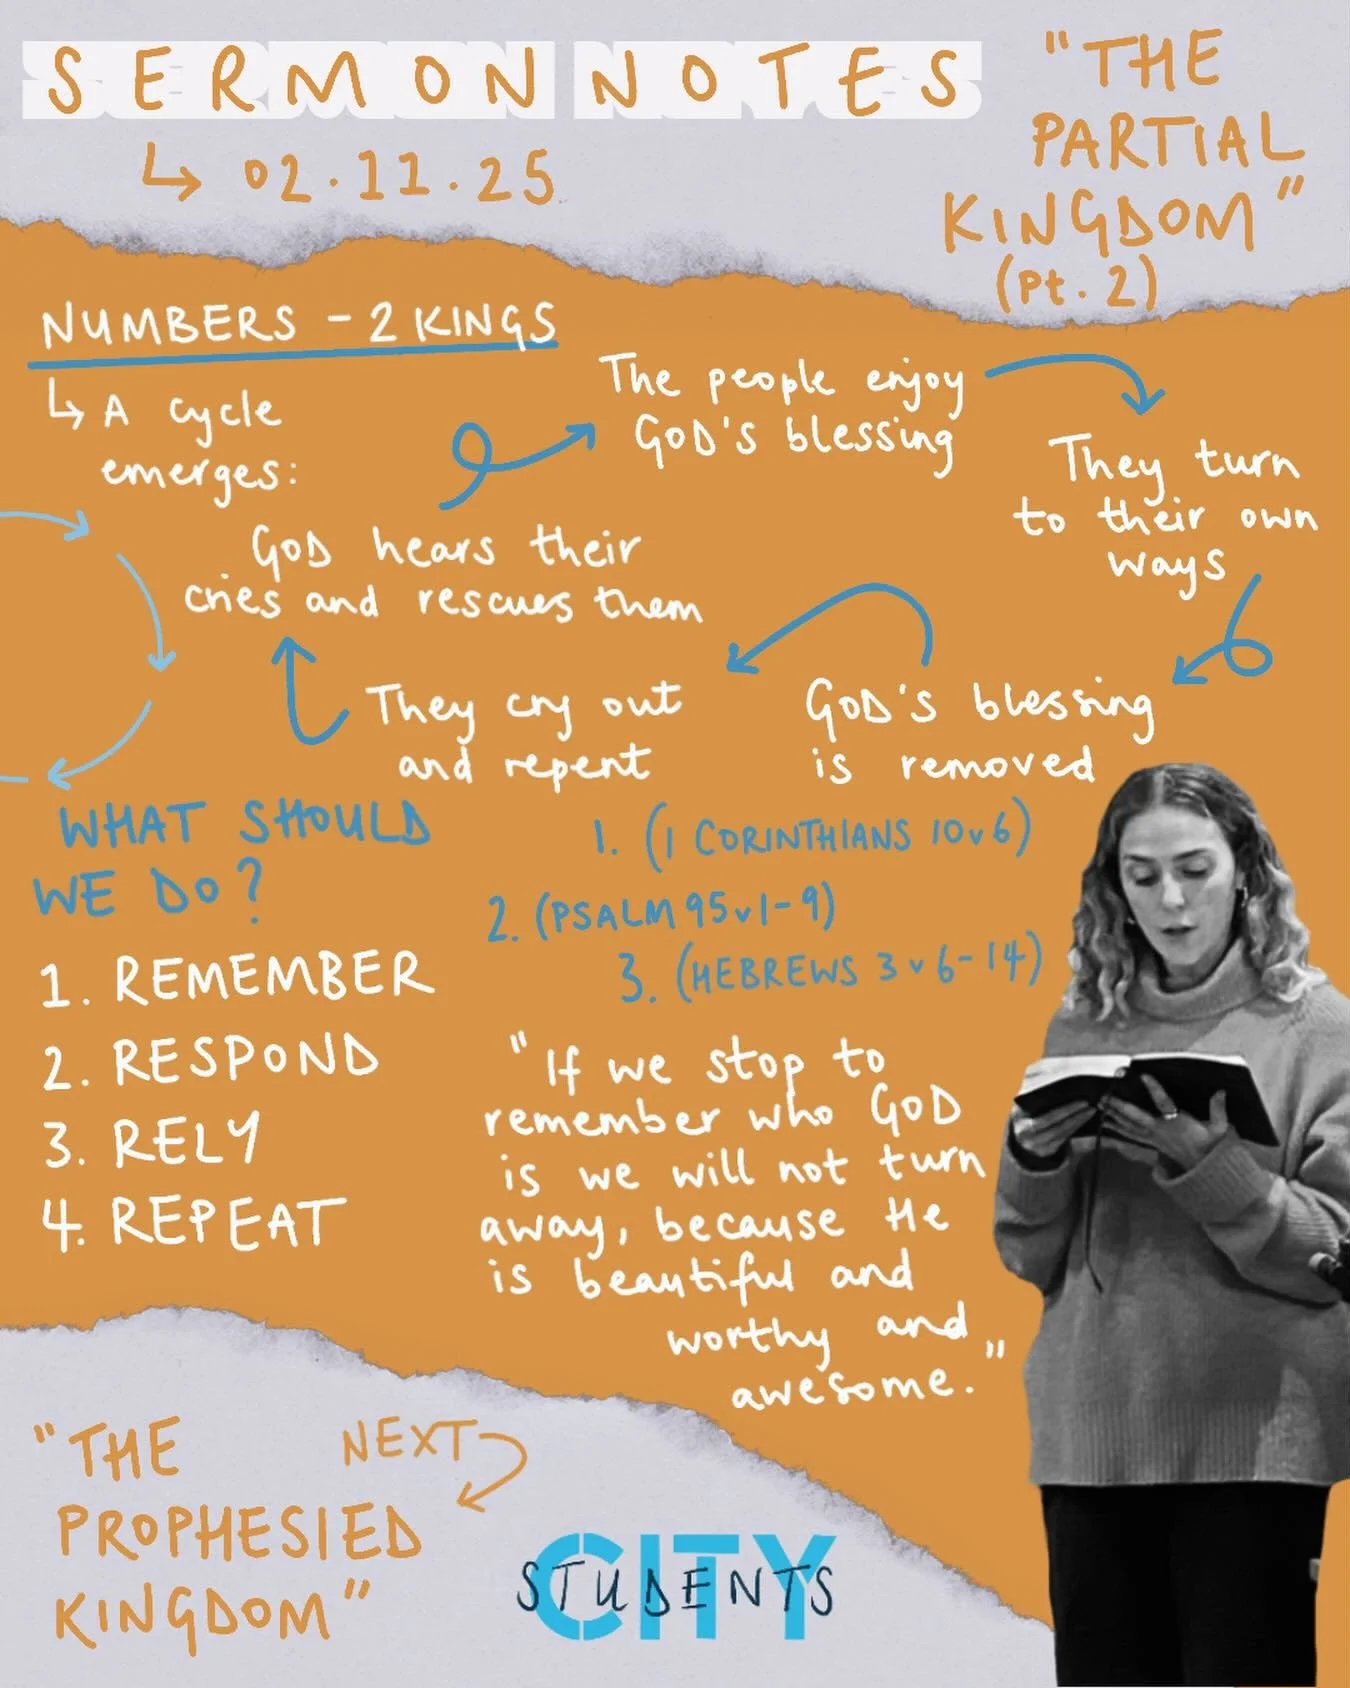 SERMON NOTES
↳ 02.11.25
"THE
PARTIAL
KINGDOM"
(Pt. 2)
NUMBERS - 2 KINGS
↳ A cycle
emerges:
The people enjoy
GOD'S blessing
They turn
to their own
ways
GOD'S blessing
is removed
They cry out
and repent
GOD hears their
cries and rescues them
WHAT SHOULD
WE DO?
1. REMEMBER
2. RESPOND
3. RELY
4. REPEAT
1. (1 CORINTHIANS 10v6)
2. (PSALM 95v1-9)
3. (HEBREWS 3v6-14)
"If we stop to
remember who GOD
is we will not turn
away, because He
is beautiful and
worthy and
awesome."
NEXT
"THE
PROPHESIED
KINGDOM"
CITY
STUDENTS